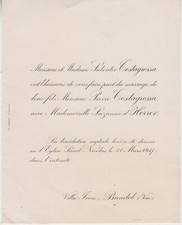 Monsieur et Madame Costagrossa
ont l'honneur de vous faire part du mariage de
leur fils Monsieur Pierre Costagrossa
avec Mademoiselle Suzanne d'
La bénédiction nuptiale leur a été donnée
en l'Eglise Saint Nicolas le 20 Mars
dans l'intimité
Villa Bandol (Var)